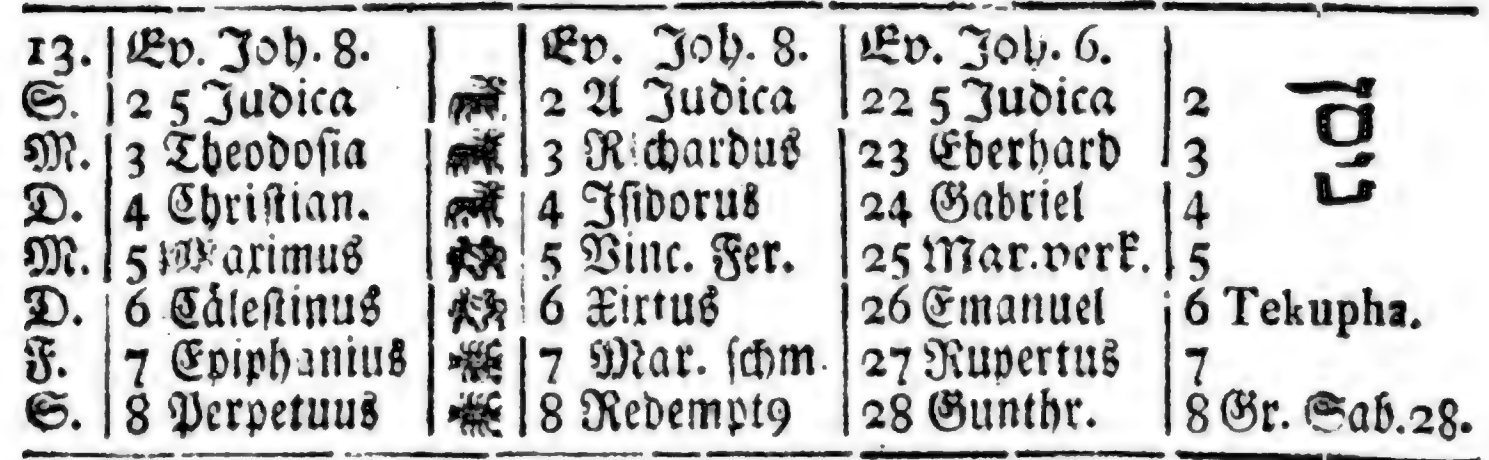 13. Ev. Joh. 8. Ev. Joh. 8. Ev. Joh. 6.
S. 2 5 Judica 2 A Judica 22 5 Judica 2
M. 3 Theodosia 3 Richardus 23 Eberhard 3
D. 4 Christian. 4 Isidorus 24 Gabriel 4
M. 5 Maximus 5 Vinc. Fer. 25 Mar. verk. 5
D. 6 Cälestinus 6 Xixtus 26 Emanuel 6 Tekupha.
F. 7 Epiphanius 7 Mar. schm. 27 Rupertus 7
S. 8 Perpetuus 8 Redempt9 28 Gunthr. 8 Gr. Sab. 28.
ניסן